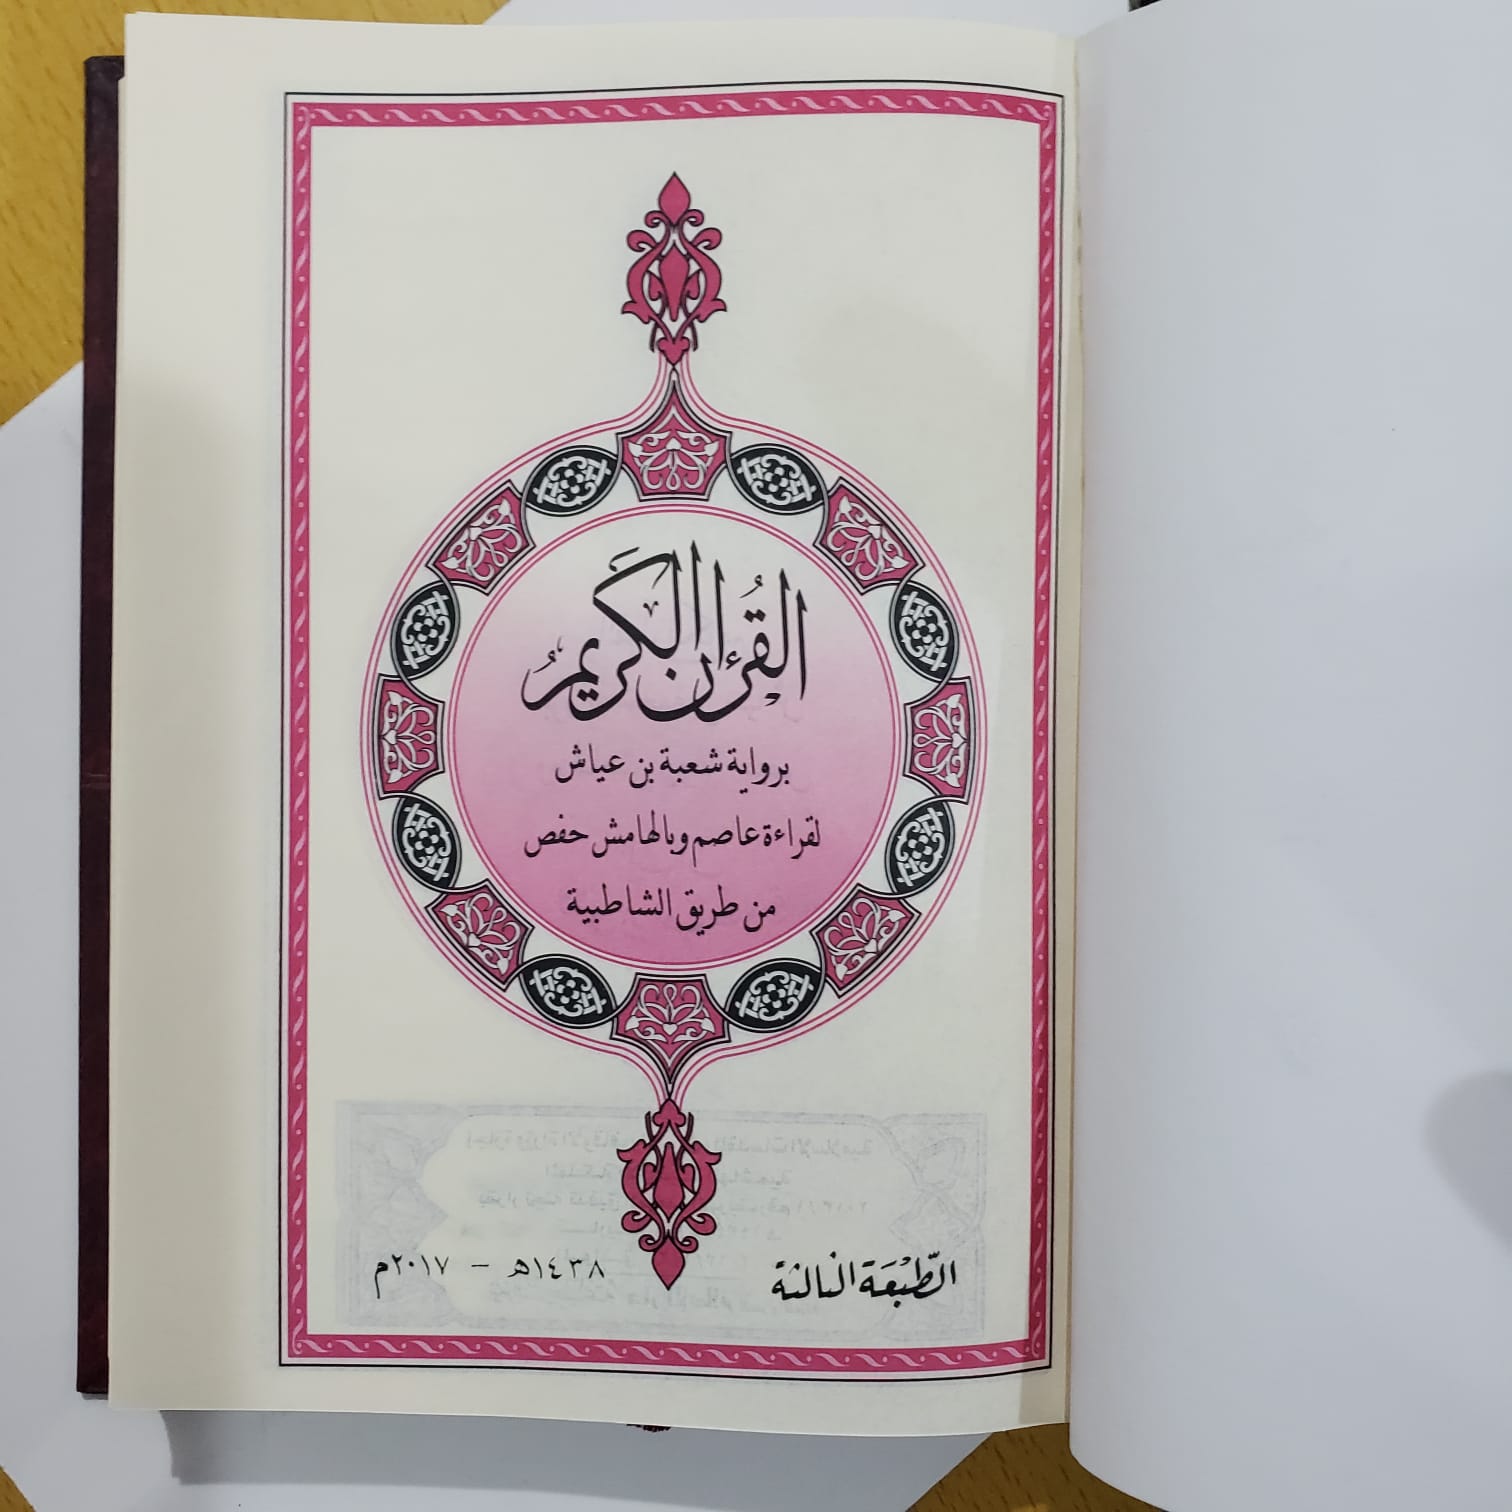 القرءان الكريم
برواية شعبة بن عياش
لقراءة عاصم وبالهامش حفص
من طريق الشاطبية
الطّبْعَة الثالثة
١٤٣٨هـ - ٢٠١٧م